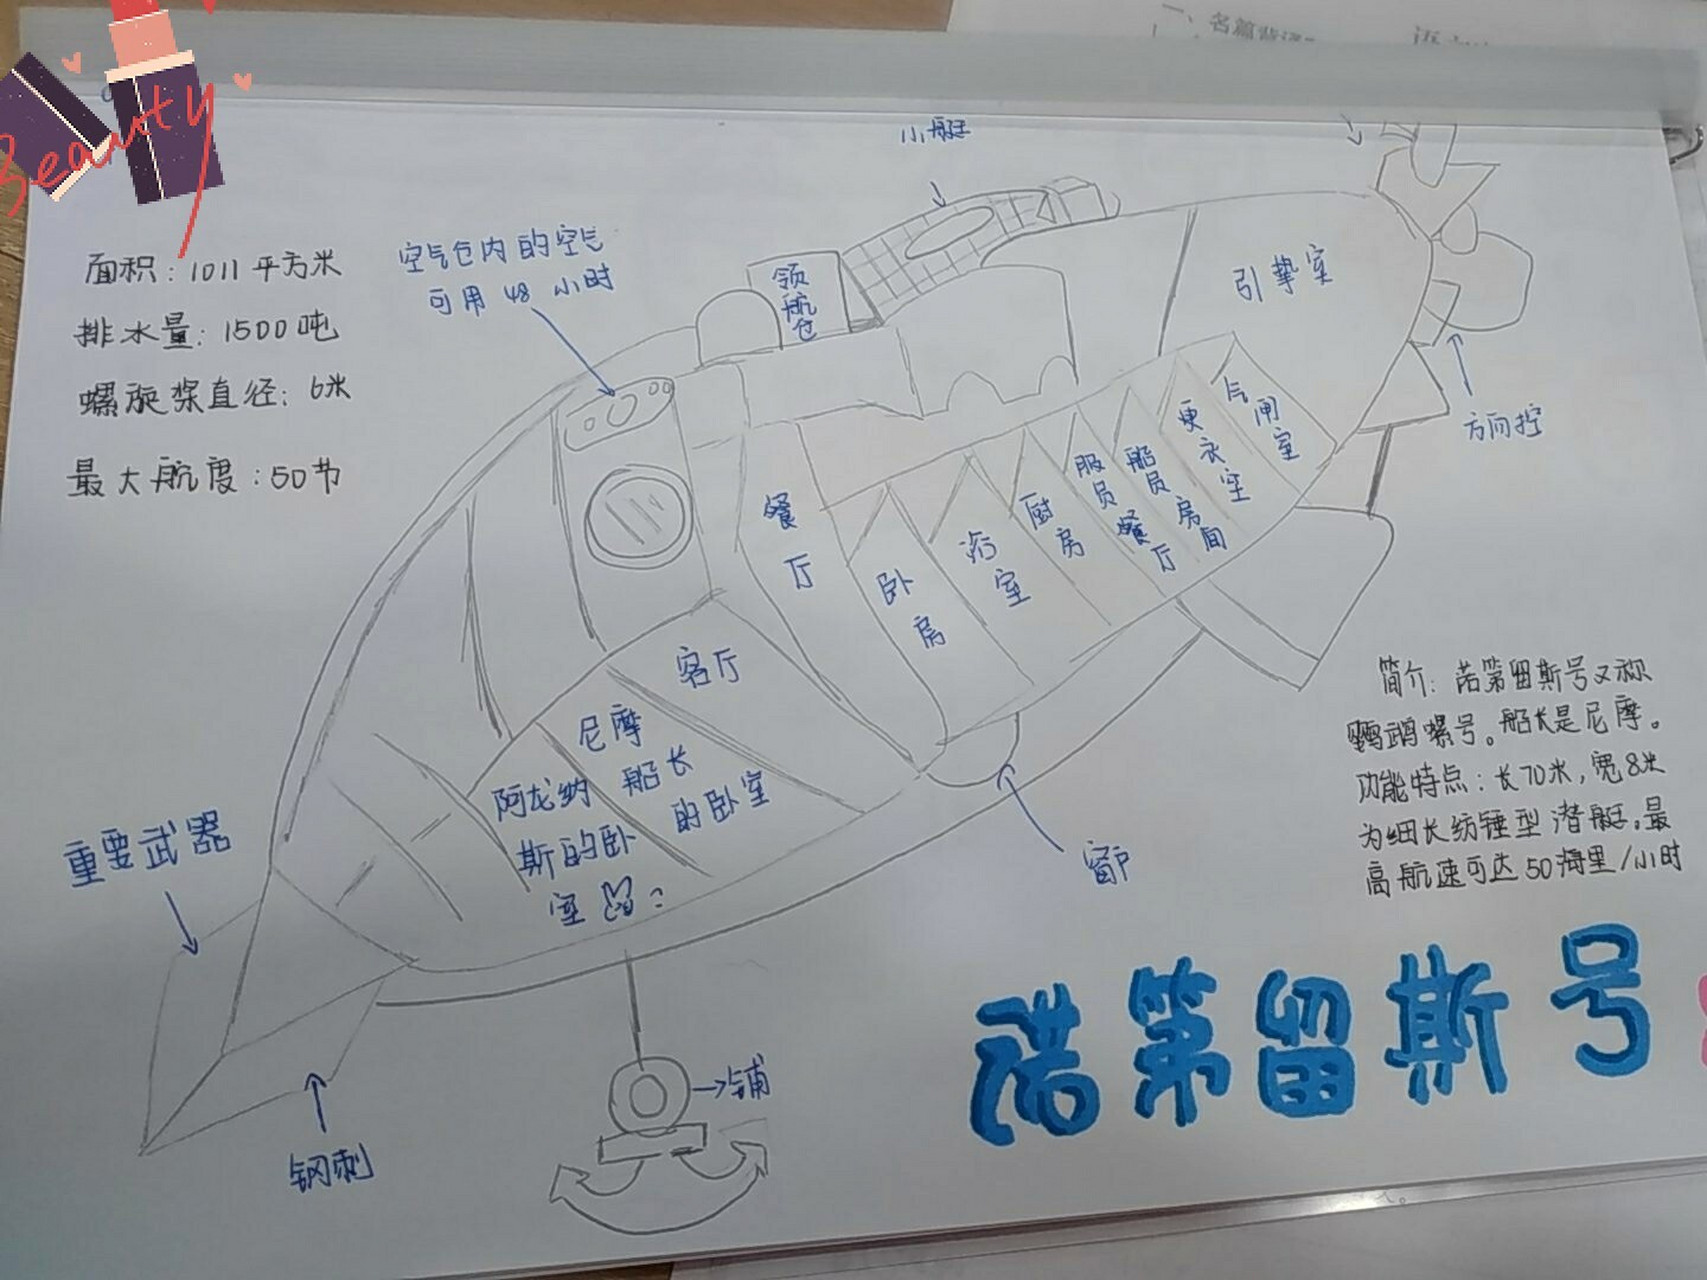 Beauty
一、名篇背诵
小艇
面积：1011平方米
排水量：1500吨
螺旋桨直径：6米
最大航度：50节
空气仓内的空气
可用48小时
领航仓
引擎室
方向控
气闸室
更衣室
船员房间
服员餐厅
厨房
浴室
卧房
餐厅
客厅
尼摩
船长
的卧室
阿龙纳
斯的卧
室
重要武器
钢刺
窗户
铺
简介：诺第留斯号又称
鹦鹉螺号。船长是尼摩。
功能特点：长70米，宽8米
为细长纺锤型潜艇。最
高航速可达50海里/小时
诺第留斯号